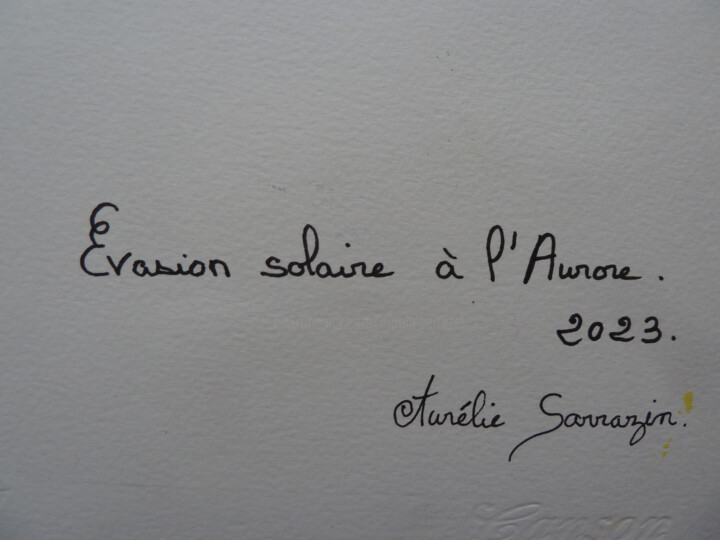 Evasion solaire à l'Aurore.
2023.
Aurélie Sarrazin.
Canson